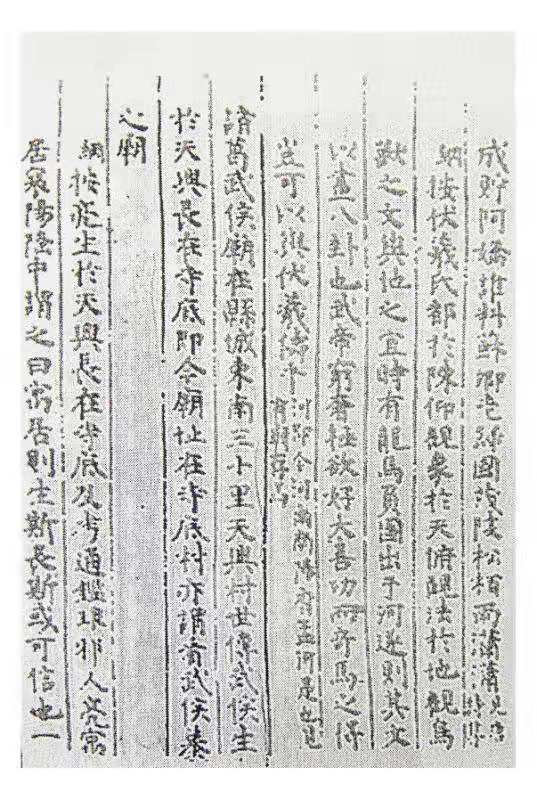 成貯阿嬌誰料蘇卿老歸國茂陵松栢雨蕭蕭
綱按伏羲氏都於陳仰觀象於天俯觀法於地觀鳥
獸之文與地之宜時有龍馬負圖出于河遂則其文
以畫八卦也武帝窮奢極欲好大喜功而奇馬之得
豈可以與伏羲儔乎
諸葛武侯廟在縣城東南三十里天興村世傳武侯生
於天興長在寺底即今廟址在寺底村亦謂有武侯
之嗣
綱按亮生於天興長在寺底及考通鑑琅邪人亮寓
居襄陽隆中謂之曰寓居則生斯長斯或可信也一